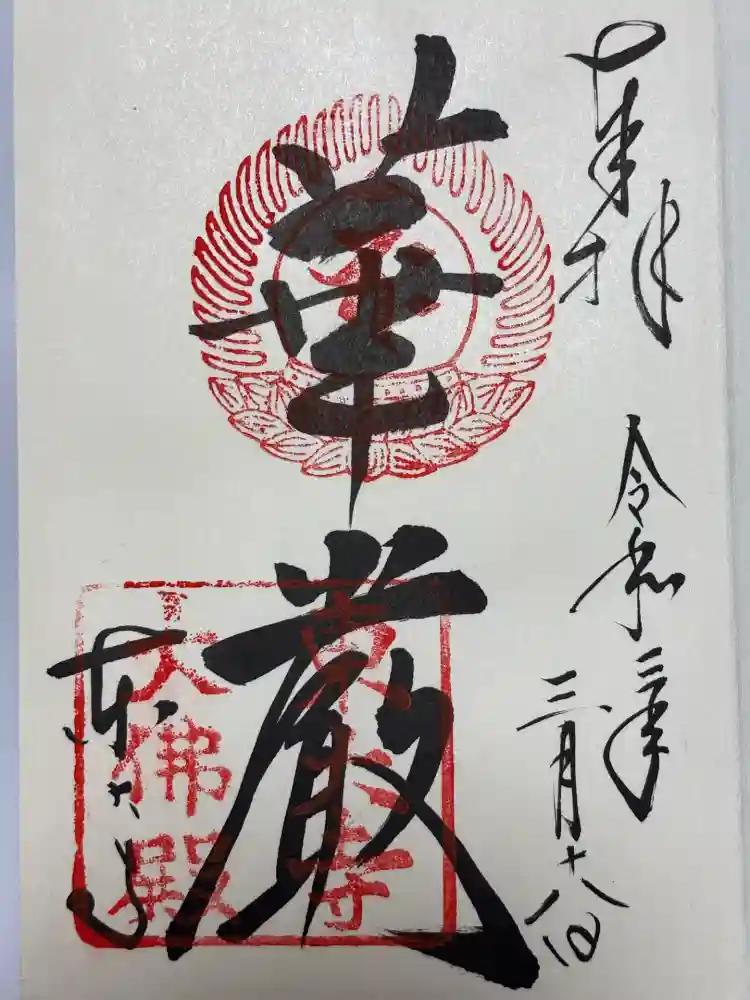 奉拝
令和三年
三月十八日
華嚴
東大寺
東大寺
大佛殿